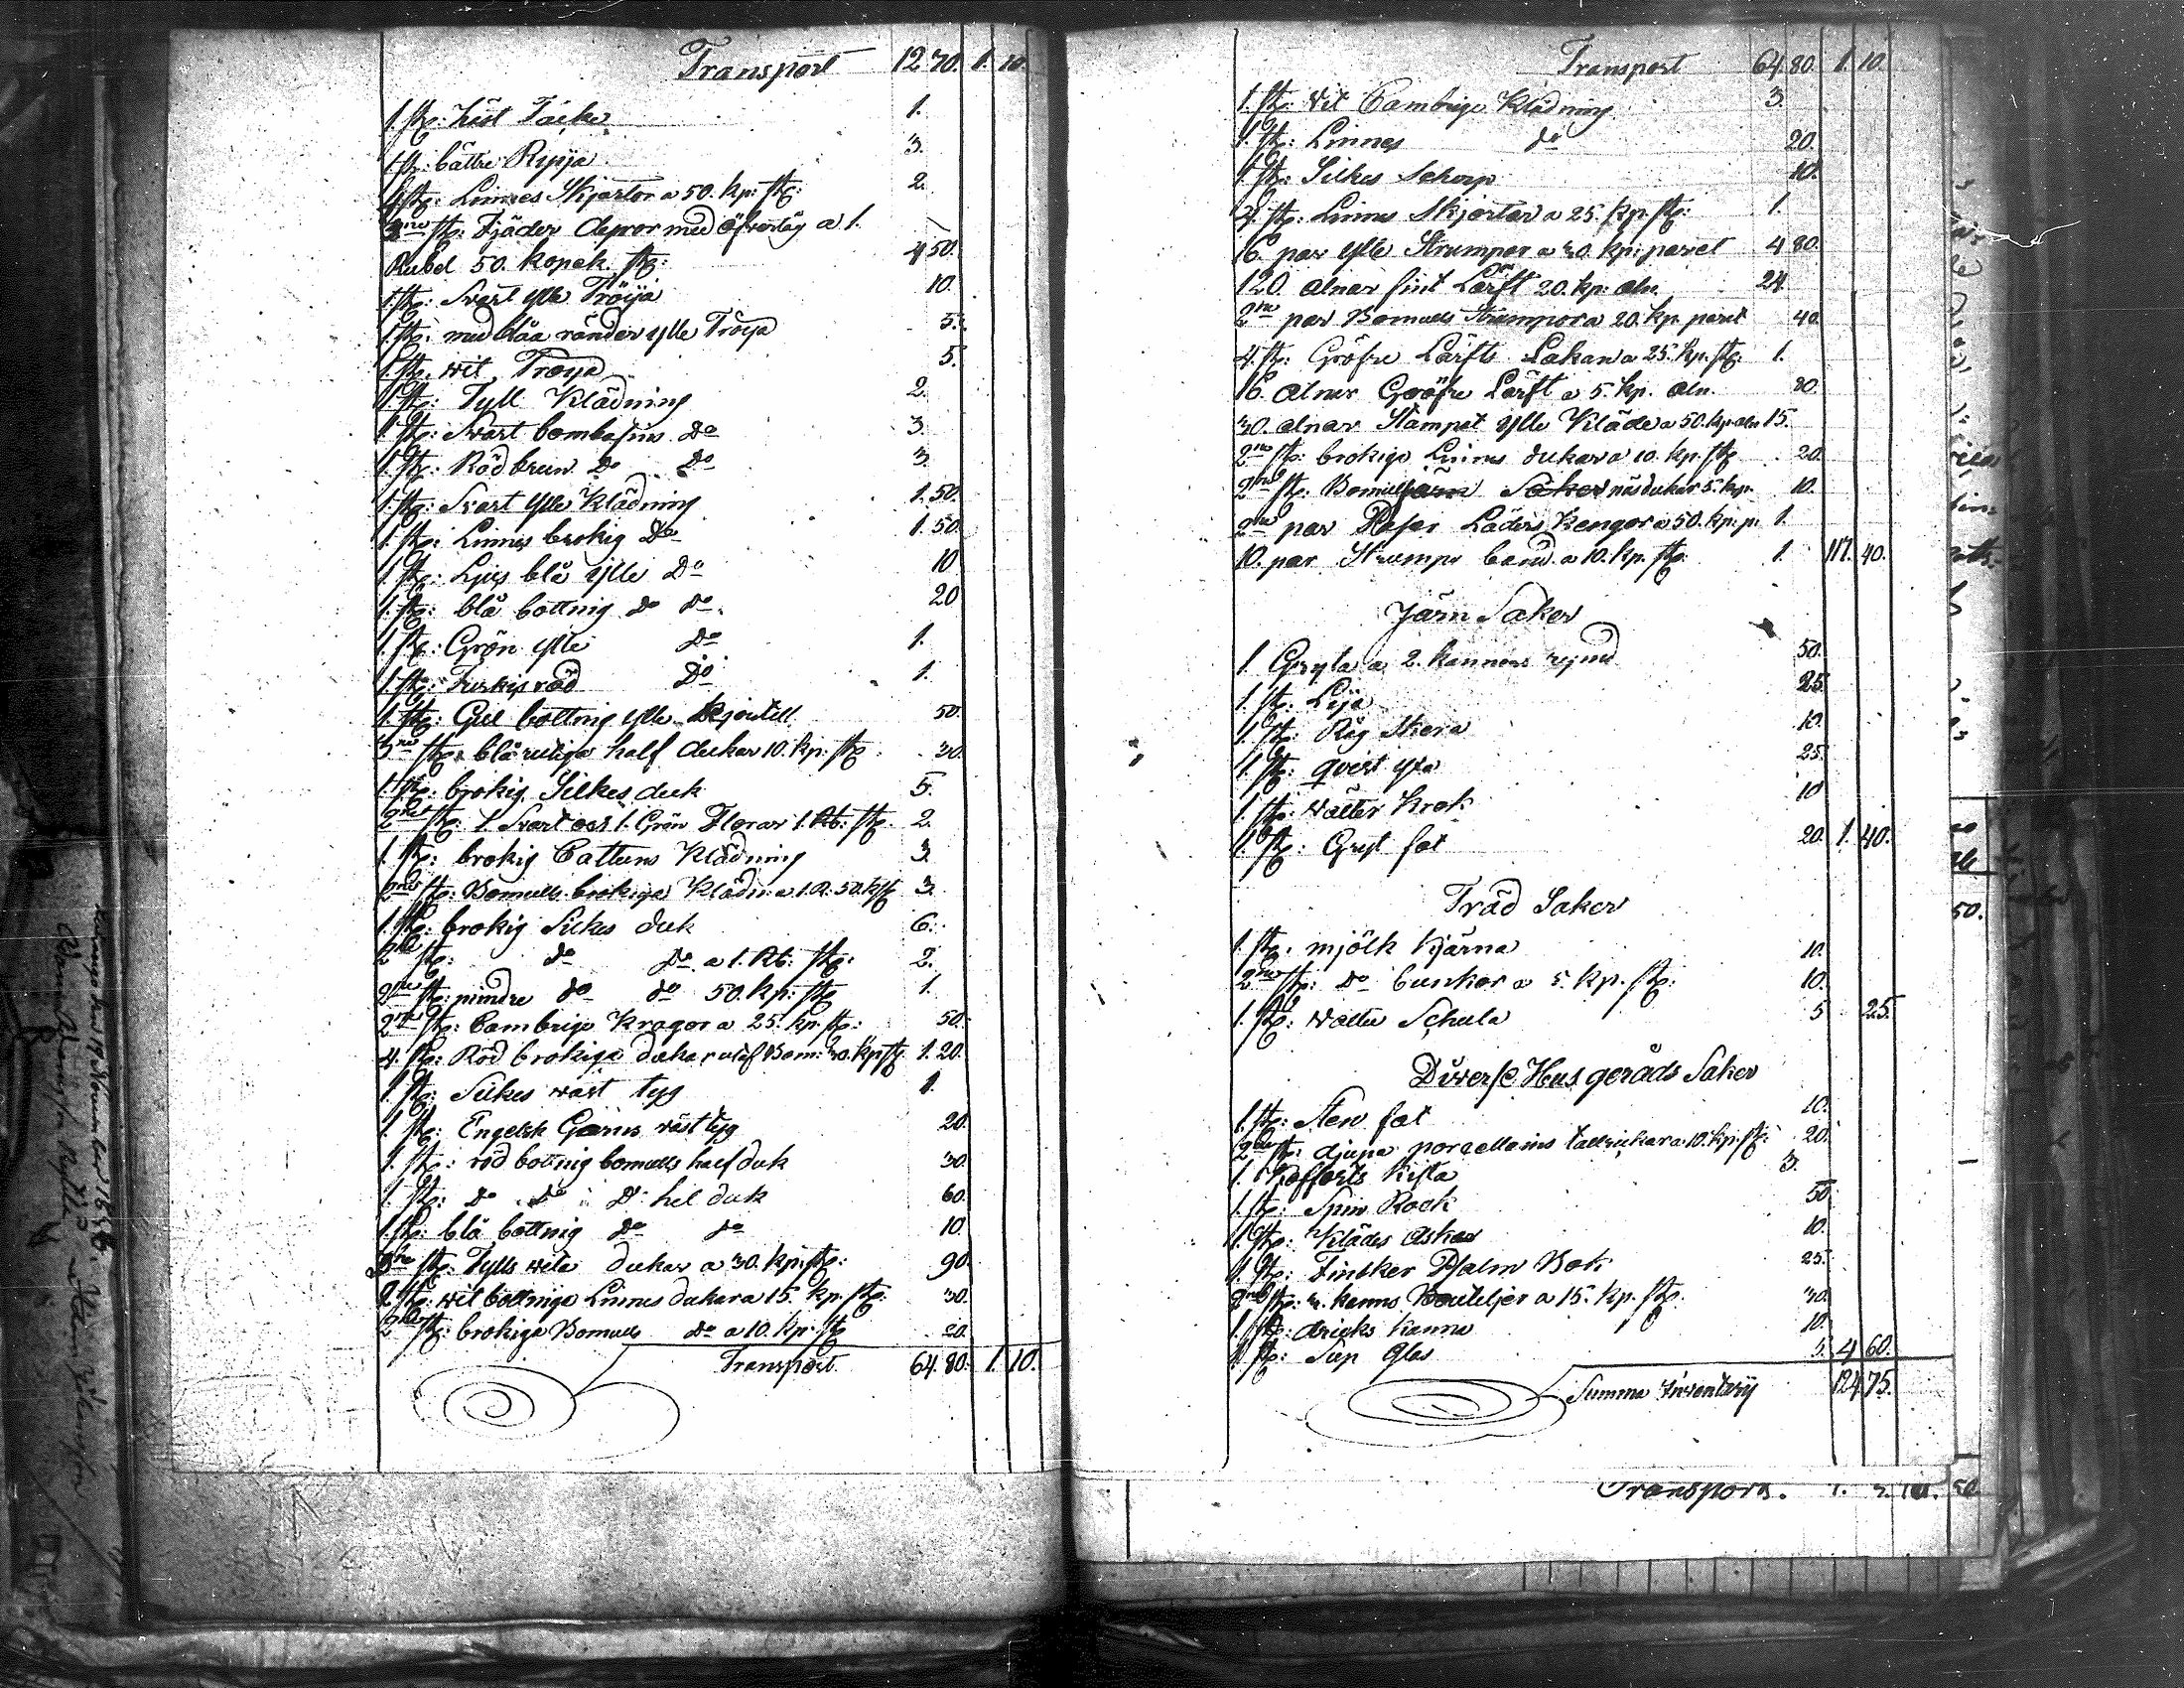 Transport 12 70. 1. 10.
1. stÿ: häst Täcke 1.
1 stÿ: bättre Ryija 3.
4 stÿ: Linnes Skjortor a 50. kp: stÿ: 2.
3ne stÿ: Fjäder depnor med öfvertåg a 1.
Rubel 50. kopek stÿ: 4 50.
1. stÿ: Svart ylle Tröija 10.
1 stÿ: med blåa ränder ylle Tröya 5.
1 stÿ. wit Tröya 5.
1 stÿ: Tyll Klädning 2.
1 stÿ: Svart bombasins Do 3.
1. stÿ: Röd brun Do Do 3.
1. stÿ: Svart ylle Klädning 1. 50.
1. stÿ: Linnes brokig Do 1. 50.
1. stÿ: Ljus blå ylle Do 10
1. stÿ: blå bottnig do do. 20
1. stÿ: Grön ylle Do 1.
1. stÿ: Turkis röd Do 1.
1. stÿ: Gul bottnig ylle Kjortell 50.
3ne stÿ: blårutiga half dukar 10. kp: stÿ 30.
1. stÿ: brokig Silkes duk 5.
2ne stÿ: 1. Svart och 1. Grön Florar 1. Rb: stÿ. 2.
1. stÿ: brokig Cattuns Klädning 3.
2ne stÿ: Bomulls brokiga Klädn: a 1. R. 50. k stÿ 3.
1. stÿ: brokig Silkes duk 6.
2ne stÿ: do do a 1. Rb: stÿ: 2.
2ne stÿ: mindre do do 50. kp: stÿ 1.
2ne stÿ: Cambriga Kragar a 25. kp. stÿ: 50.
4. stÿ: Röd brokiga dukar utaf Bom: 30. kp stÿ 1. 20.
1. stÿ: Silkes wäst tyg 1.
1. stÿ: Engelsk Garns väst tyg 20.
1. stÿ: röd bottnig bomulls half duk 30.
1. stÿ: Do Do D: hel duk 60.
1. stÿ: blå bottnig do do 10.
3ne stÿ: Tylls wita dukar a 30. kp: stÿ: 90.
2 stÿ: wit bottniga Linnes dukar a 15. kp. stÿ: 30.
2ne stÿ: brokiga Bomulls do a 10. kp: stÿ 20.
Transport 64. 80. 1. 10.
Transport 64 80. 1. 10.
1. stÿ: wit Cambrigs Klädning 3.
1. stÿ: Linnes do 20.
1. stÿ: Silkes Schorp 10.
4. stÿ: Linnes Skjortor a 25. kp. stÿ: 1.
16. par ylle Strumpor a 30. kp: paret 4 80.
120. alnar fint Lärft 20. kp: aln 24.
2ne par Bomulls Strumpor a 20. kp paret 40.
4. stÿ: Gröfre Lärfts Lakan a 25. kp. stÿ: 1.
16. alnar Gröfre Lärft a 5. kp. aln. 80.
30. alnar Stampat ylle Kläde a 50. kp aln 15.
2ne stÿ: brokiga Linnes dukar a 10. kp. stÿ 20.
2ne stÿ: Bomulls näsdukar 5. kp. 10.
2ne par Läders Kengor a 50. kp: p: 1.
10. par Strumpe band a 10. kp. stÿ 1. 117. 40.
Järn Saker
1. Gryta a 2. kannors rymd 50.
1. stÿ: Lija 25.
1. stÿ: Råg Skera 10.
1. stÿ: qvist yxa 25.
1. stÿ: wätter Krok 10
1. stÿ: Gryt fat 20. 1. 40.
Träd Saker
1. stÿ: mjölk Kjärna 10.
2ne stÿ: do bunkar a 5. kp. stÿ. 10.
1. stÿ: watten Schula 5 25.
Diverse Hus geråds Saker
1. stÿ: Sten fat 10.
2ne stÿ: djupa porcellains tallrickar a 10. kp. stÿ: 20.
1. Kofferts Kista 3.
1. stÿ: Spin Rock 50.
1. stÿ: Klädes Askar 10.
1. stÿ: Finsker Psalm Bok 25.
2ne stÿ: kanns Bouteljer a 15. kp. stÿ. 30.
1. stÿ: dricks kanna 10.
1 stÿ: Sup Glas 5. 4 60.
Summa Inventarij 124 75.
Transport.